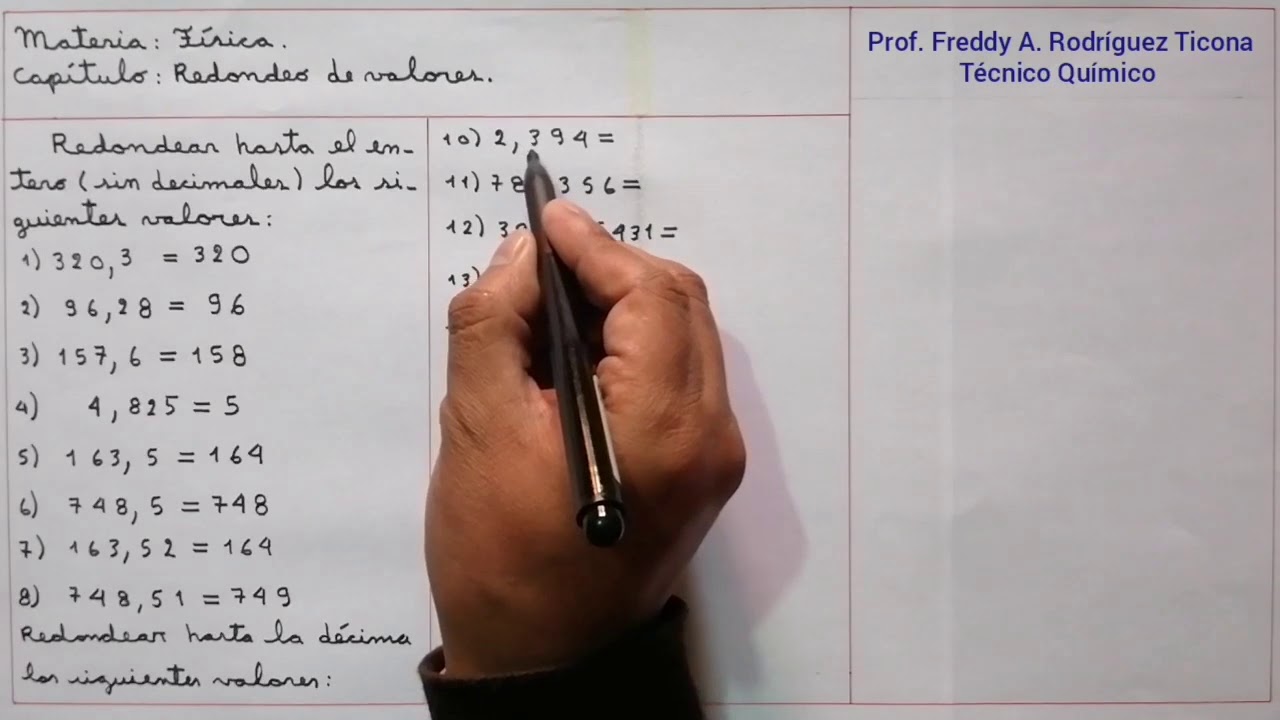 Materia: Física.
Capítulo: Redondeo de valores.
Prof. Freddy A. Rodríguez Ticona
Técnico Químico
Redondear hasta el en-
tero (sin decimales) los si-
guientes valores:
1) 320,3 = 320
2) 96,28 = 96
3) 157,6 = 158
4) 4,825 = 5
5) 163,5 = 164
6) 748,5 = 748
7) 163,52 = 164
8) 748,51 = 749
Redondear hasta la décima
los siguientes valores:
10) 2,394 =
11) 78 356 =
12) 431 =
13)